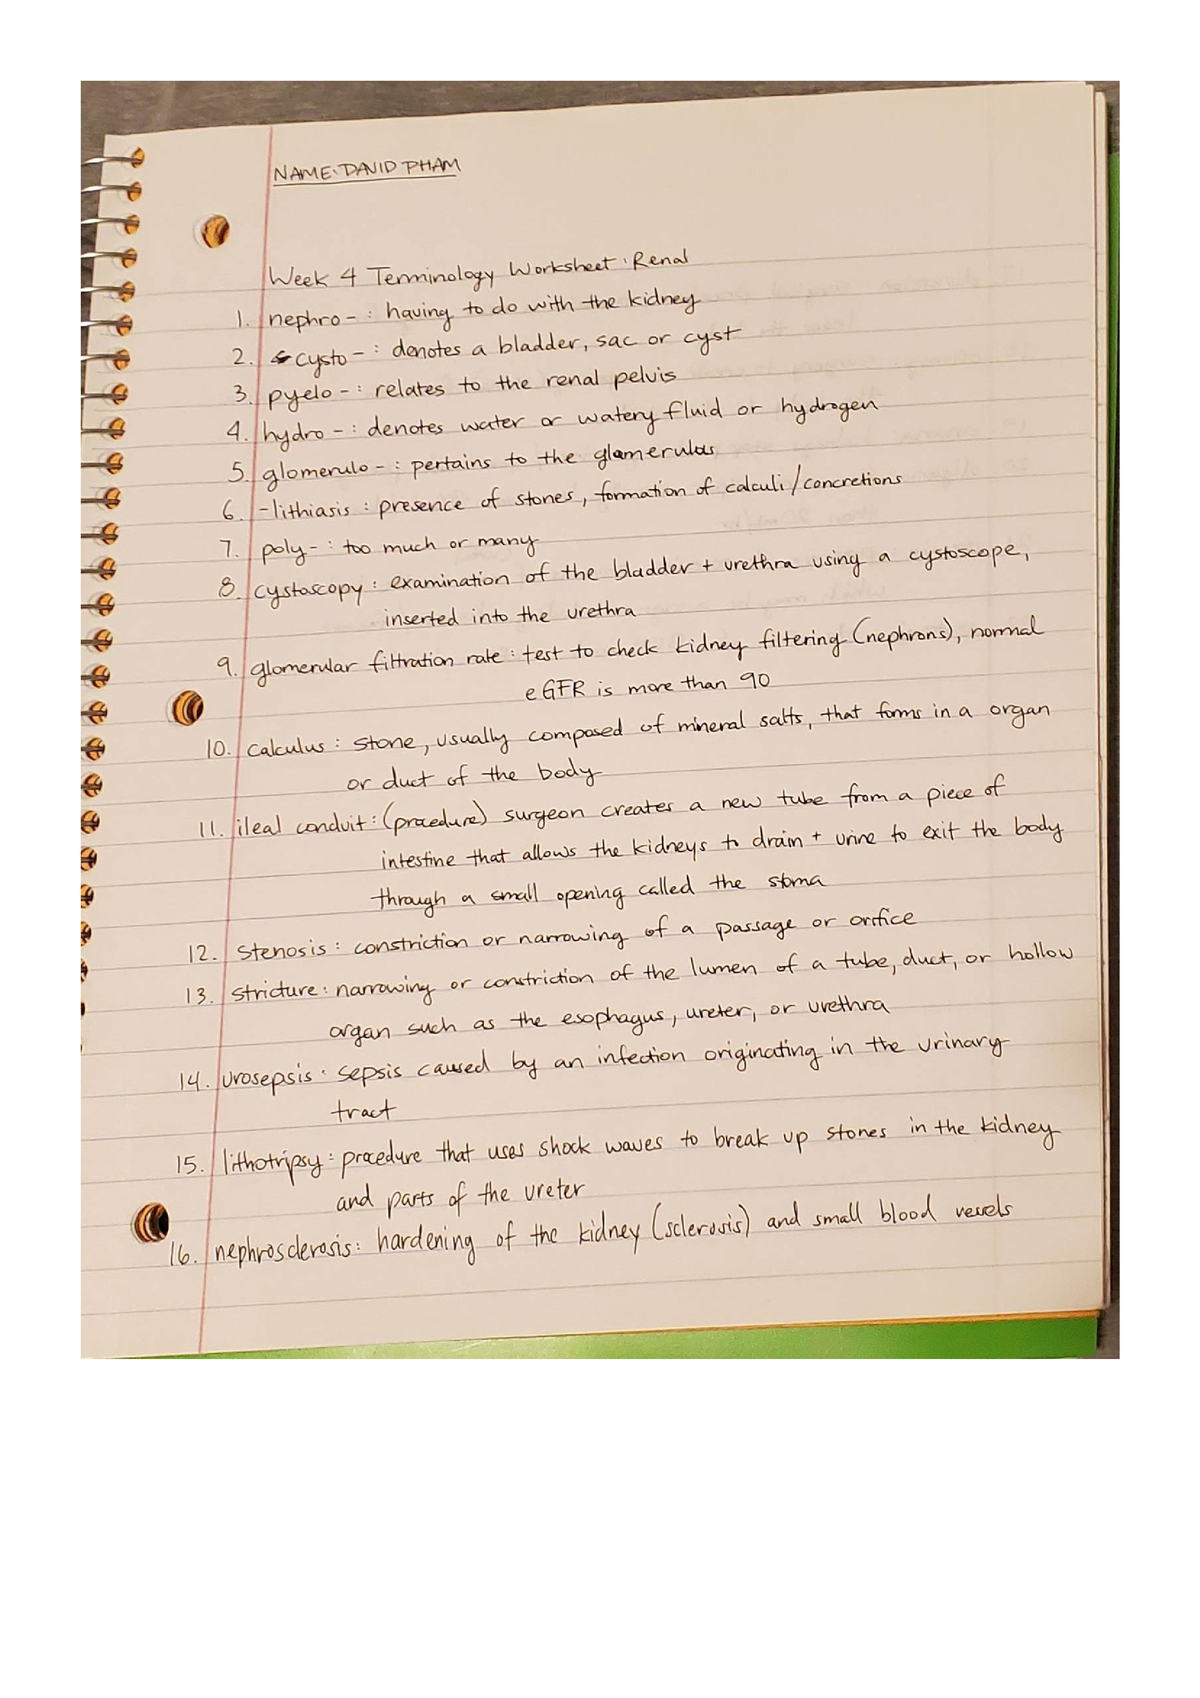 NAME: DAVID PHAM
Week 4 Terminology Worksheet: Renal
1. nephro- : having to do with the kidney
2. cysto- : denotes a bladder, sac or cyst
3. pyelo- : relates to the renal pelvis
4. hydro- : denotes water or watery fluid or hydrogen
5. glomerulo- : pertains to the glomerulus
6. -lithiasis : presence of stones, formation of calculi/concretions
7. poly- : too much or many
8. cystoscopy : examination of the bladder + urethra using a cystoscope,
inserted into the urethra
9. glomerular filtration rate : test to check kidney filtering (nephrons), normal
eGFR is more than 90
10. calculus : stone, usually composed of mineral salts, that forms in a organ
or duct of the body
11. ileal conduit : (procedure) surgeon creates a new tube from a piece of
intestine that allows the kidneys to drain + urine to exit the body
through a small opening called the stoma
12. stenosis : constriction or narrowing of a passage or orifice
13. stricture : narrowing or constriction of the lumen of a tube, duct, or hollow
organ such as the esophagus, ureter, or urethra
14. urosepsis : sepsis caused by an infection originating in the urinary
tract
15. lithotripsy : procedure that uses shock waves to break up stones in the kidney
and parts of the ureter
16. nephrosclerosis : hardening of the kidney (sclerosis) and small blood vessels